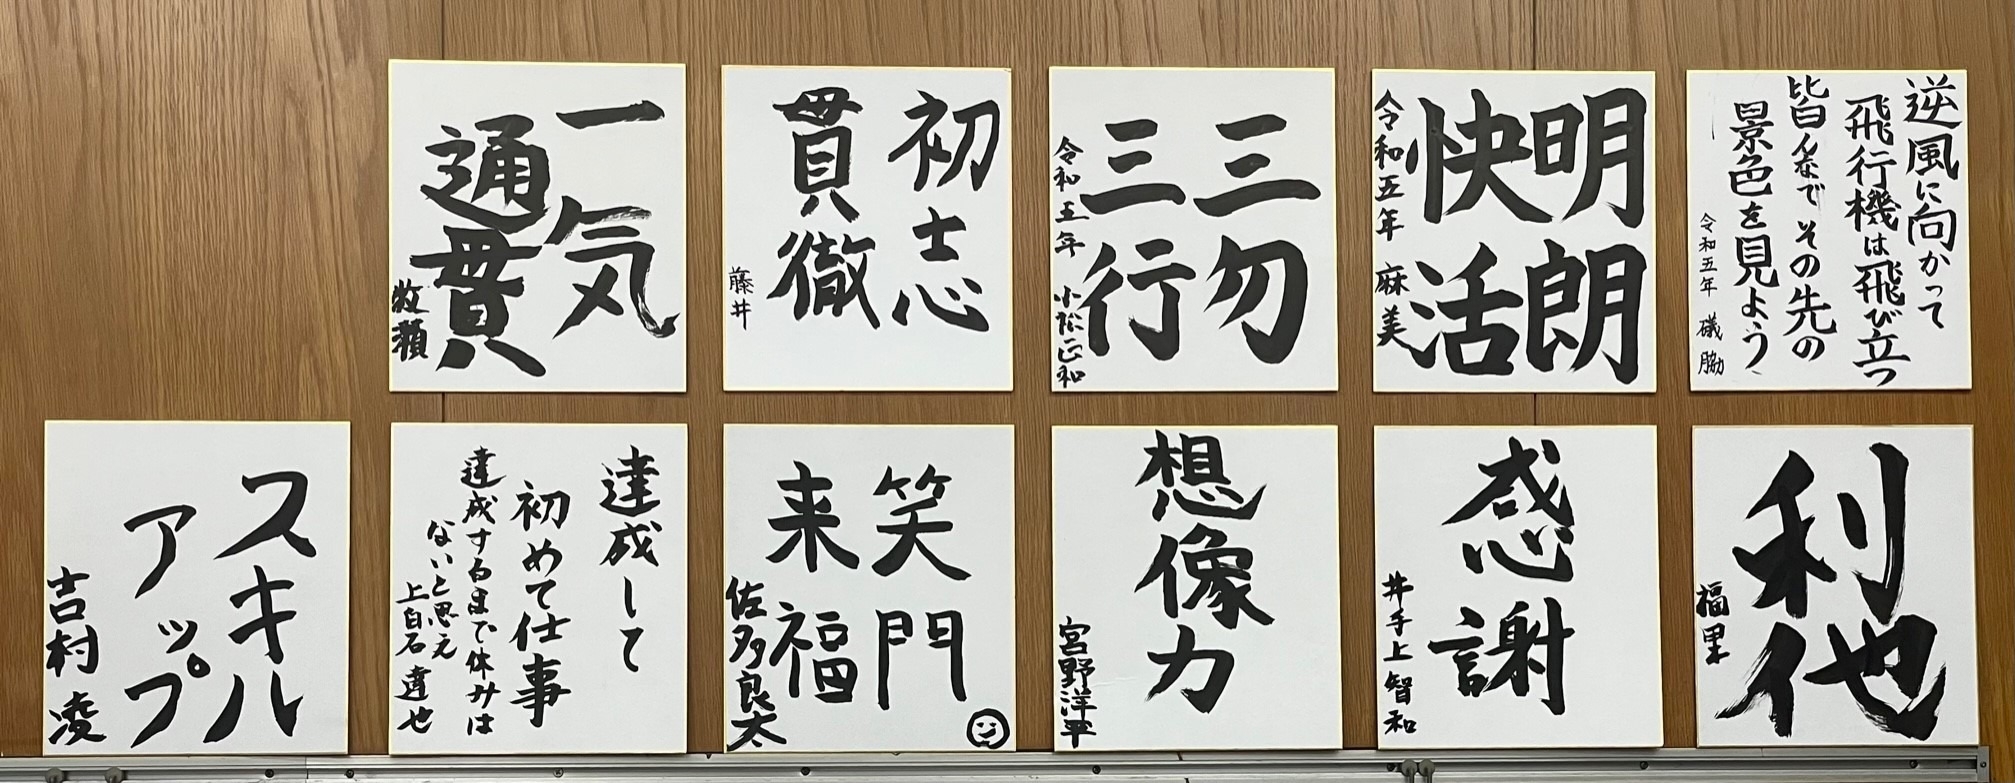 逆風に向かって
飛行機は飛び立つ
皆んなでその先の
景色を見よう
令和五年 礒脇
明朗
快活
令和五年 麻美
三勿
三行
令和五年 小松正和
初志
貫徹
藤井
一気
通貫
牧瀬
利他
福里
感謝
井手上智和
想像力
宮野洋平
笑門
来福
佐多良太
達成して
初めて仕事
達成するまで休みは
ないと思え
上白石達也
スキル
アップ
吉村凌